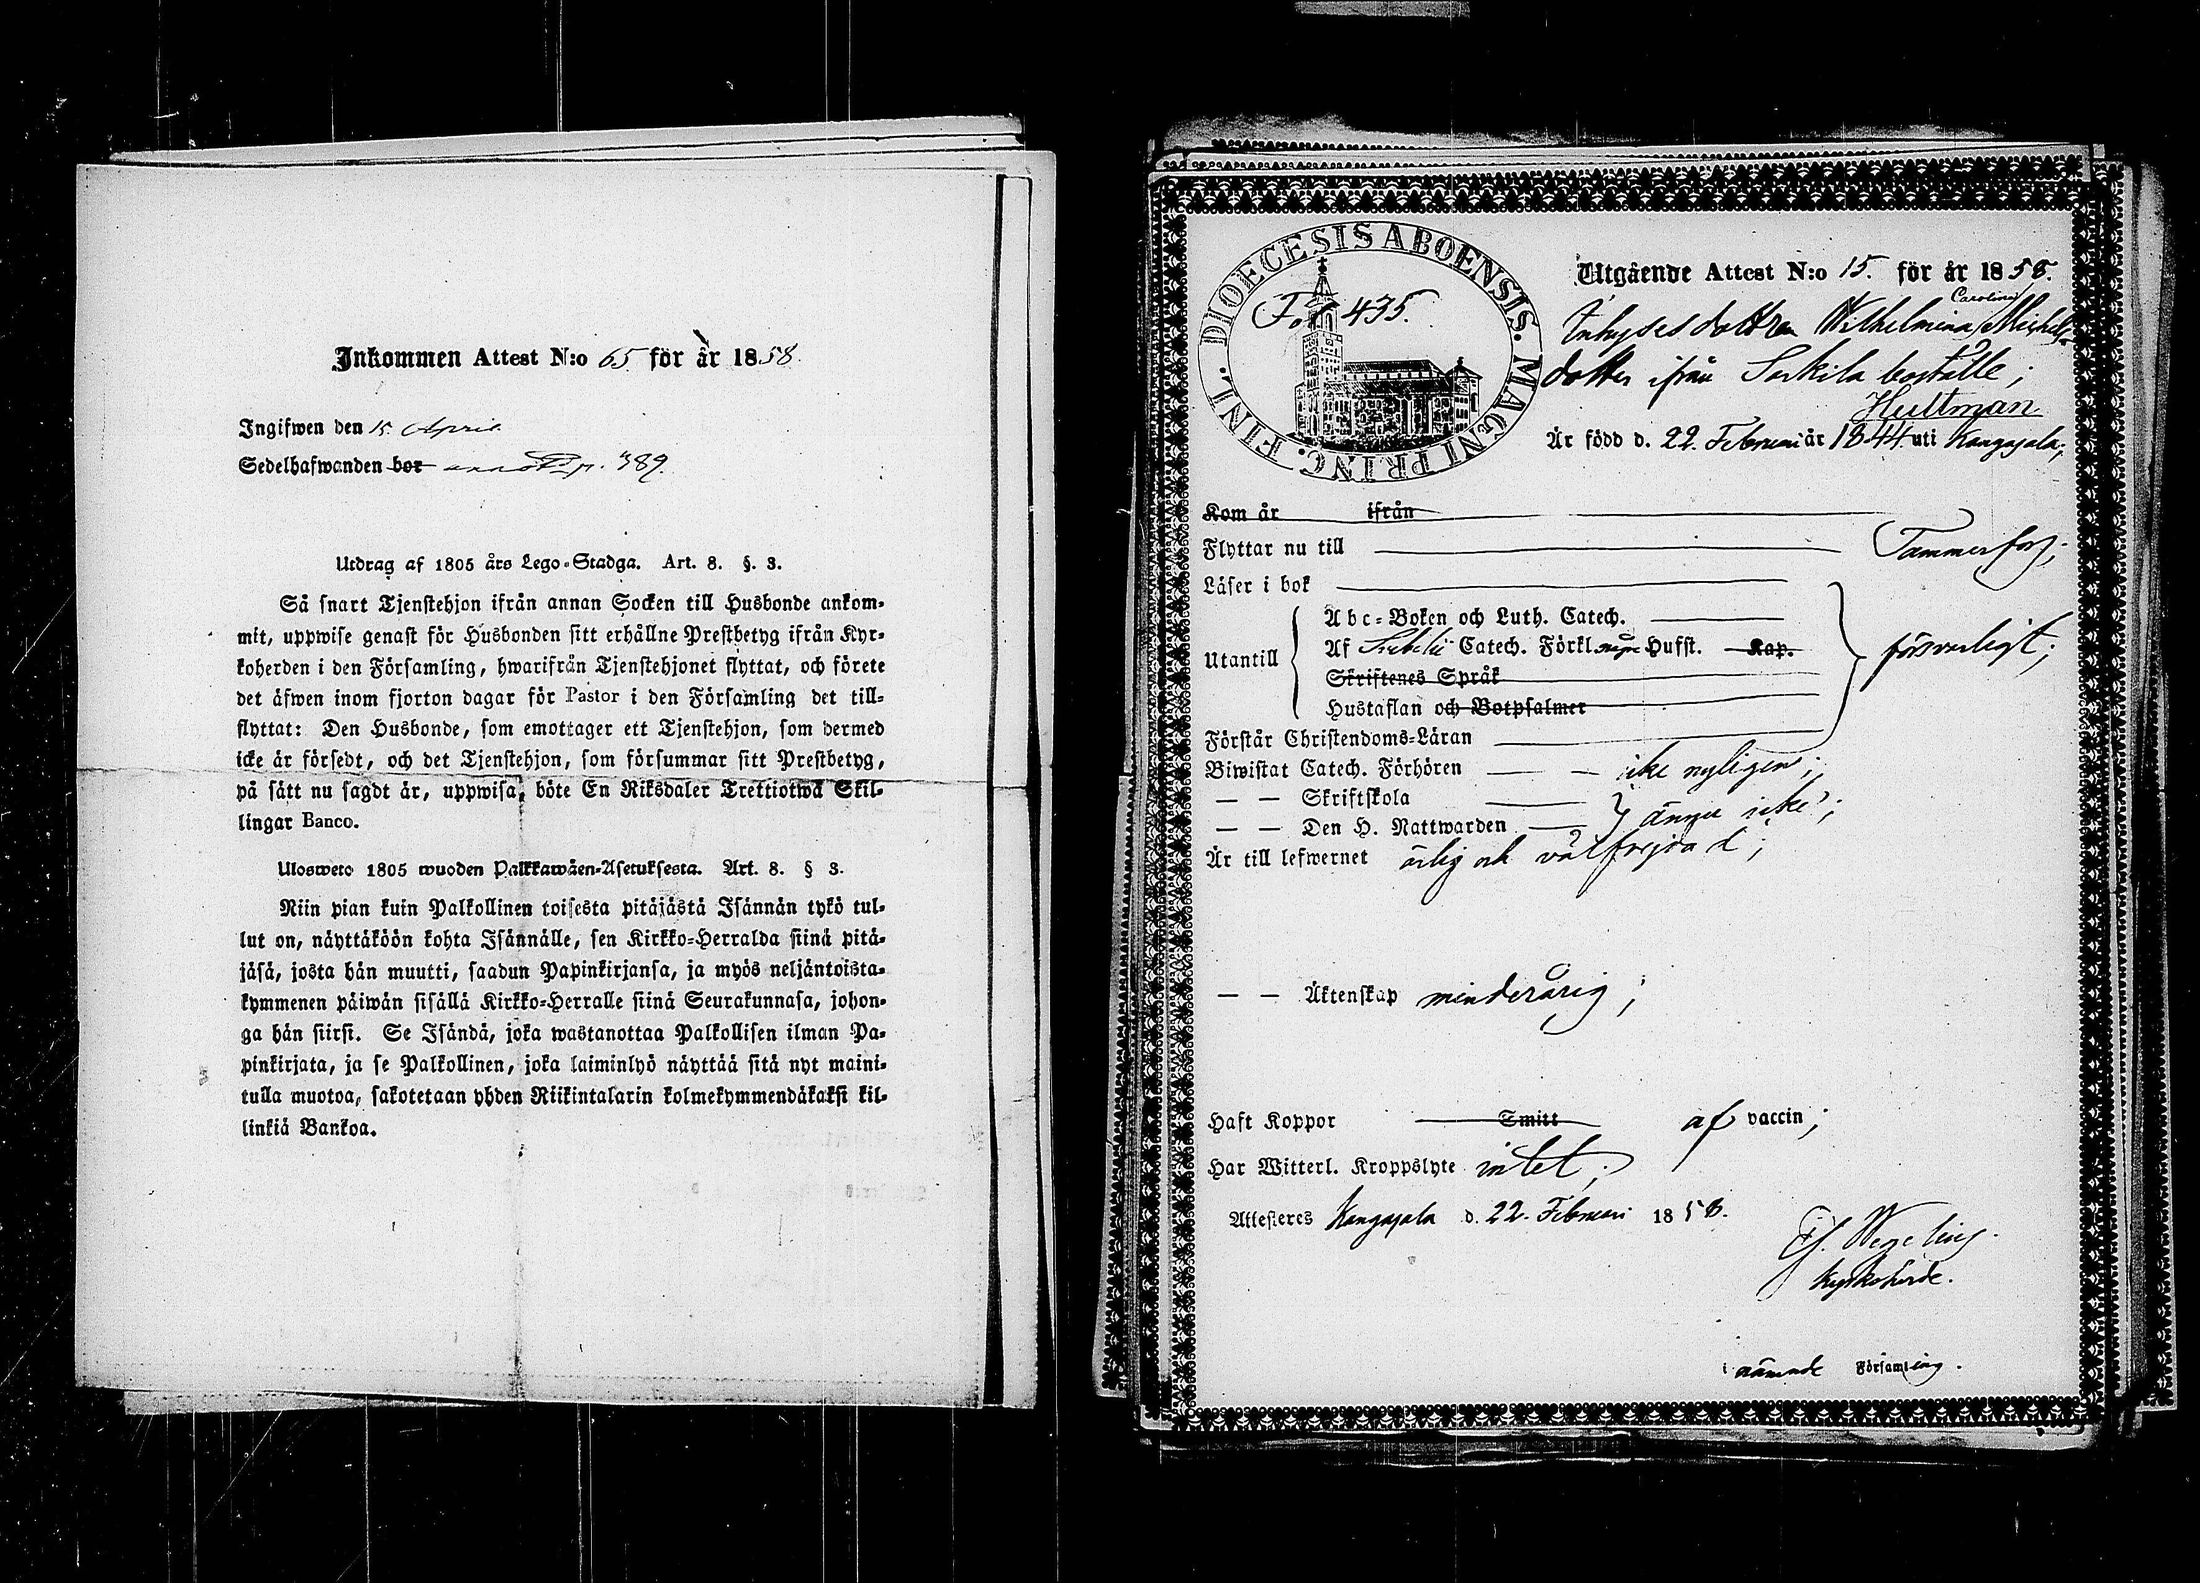 Inkommen Attest N:o 65 för år 1858.
Ingifwen den 15 April
Sedelhafwanden bor annot. p. 389.
Utdrag af 1805 års Lego-Stadga. Art. 8. §. 3.
Så snart Tjenstehjon ifrån annan Socken till Husbonde ankom-
mit, uppwise genast för Husbonden sitt erhållne Prestbetyg ifrån Kyr-
koherden i den Församling, hwarifrån Tjenstehjonet flyttat, och förete
det äfwen inom fjorton dagar för Pastor i den Församling det till-
flyttat: Den Husbonde, som emottager ett Tjenstehjon, som dermed
icke är försedt, och det Tjenstehjon, som försummar sitt Prestbetyg,
på sätt nu sagdt är, uppwisa, böte En Riksdaler Trettiotwå Skil-
lingar Banco.
Ulosweto 1805 wuoden Palkkawäen-Asetuksesta. Art. 8. § 3.
Niin pian kuin Palkollinen toisesta pitäjästä Isännän tykö tul-
lut on, näyttäköön kohta Isännälle, sen Kirkko-Herralda siinä pitä-
jäsä, josta hän muutti, saadun Papinkirjansa, ja myös neljäntoista-
kymmenen päiwän sisällä Kirkko-Herralle siinä Seurakunnasa, johon-
ga hän siirsi. Se Isändä, joka wastanottaa Palkollisen ilman Pa-
pinkirjata, ja se Palkollinen, joka laiminlyö näyttää sitä nyt maini-
tulla muotoa, sakotetaan yhden Riikintalarin kolmekymmendäkaksi kil-
linkiä Bankoa.
DIOECESIS ABOENSIS. MAGNI PRINC. FINL.
Fol 435.
Utgående Attest N:o 15. för år 1858.
Carolina
Inhyses dottren Wilhelmina Michels
dotter ifrån Sorkila boställe;
Hultman
Är född d. 22 Februari år 1844 uti Kangasala;
Kom år ifrån
Flyttar nu till Tammerfors;
Läser i bok
Abc-Boken och Luth. Catech.
Utantill Af Svebelii Catech. Förkl. några Hufst. Kap. försvarligt;
Skriftenes Språk
Hustaflan och Botpsalmer
Förstår Christendoms-Läran
Biwistat Catech. Förhören icke nyligen;
— — Skriftskola
— — Den H. Nattwarden ännu icke;
Är till lefwernet ärlig och välfrejdad;
— — Äktenskap minderårig;
Haft Koppor Smitt af vaccin;
Har Witterl. Kroppslyte intet;
Attesteres Kangasala d. 22. Februari 1858.
Wegelius.
Kyrkoherde.
i nämnde Församling.